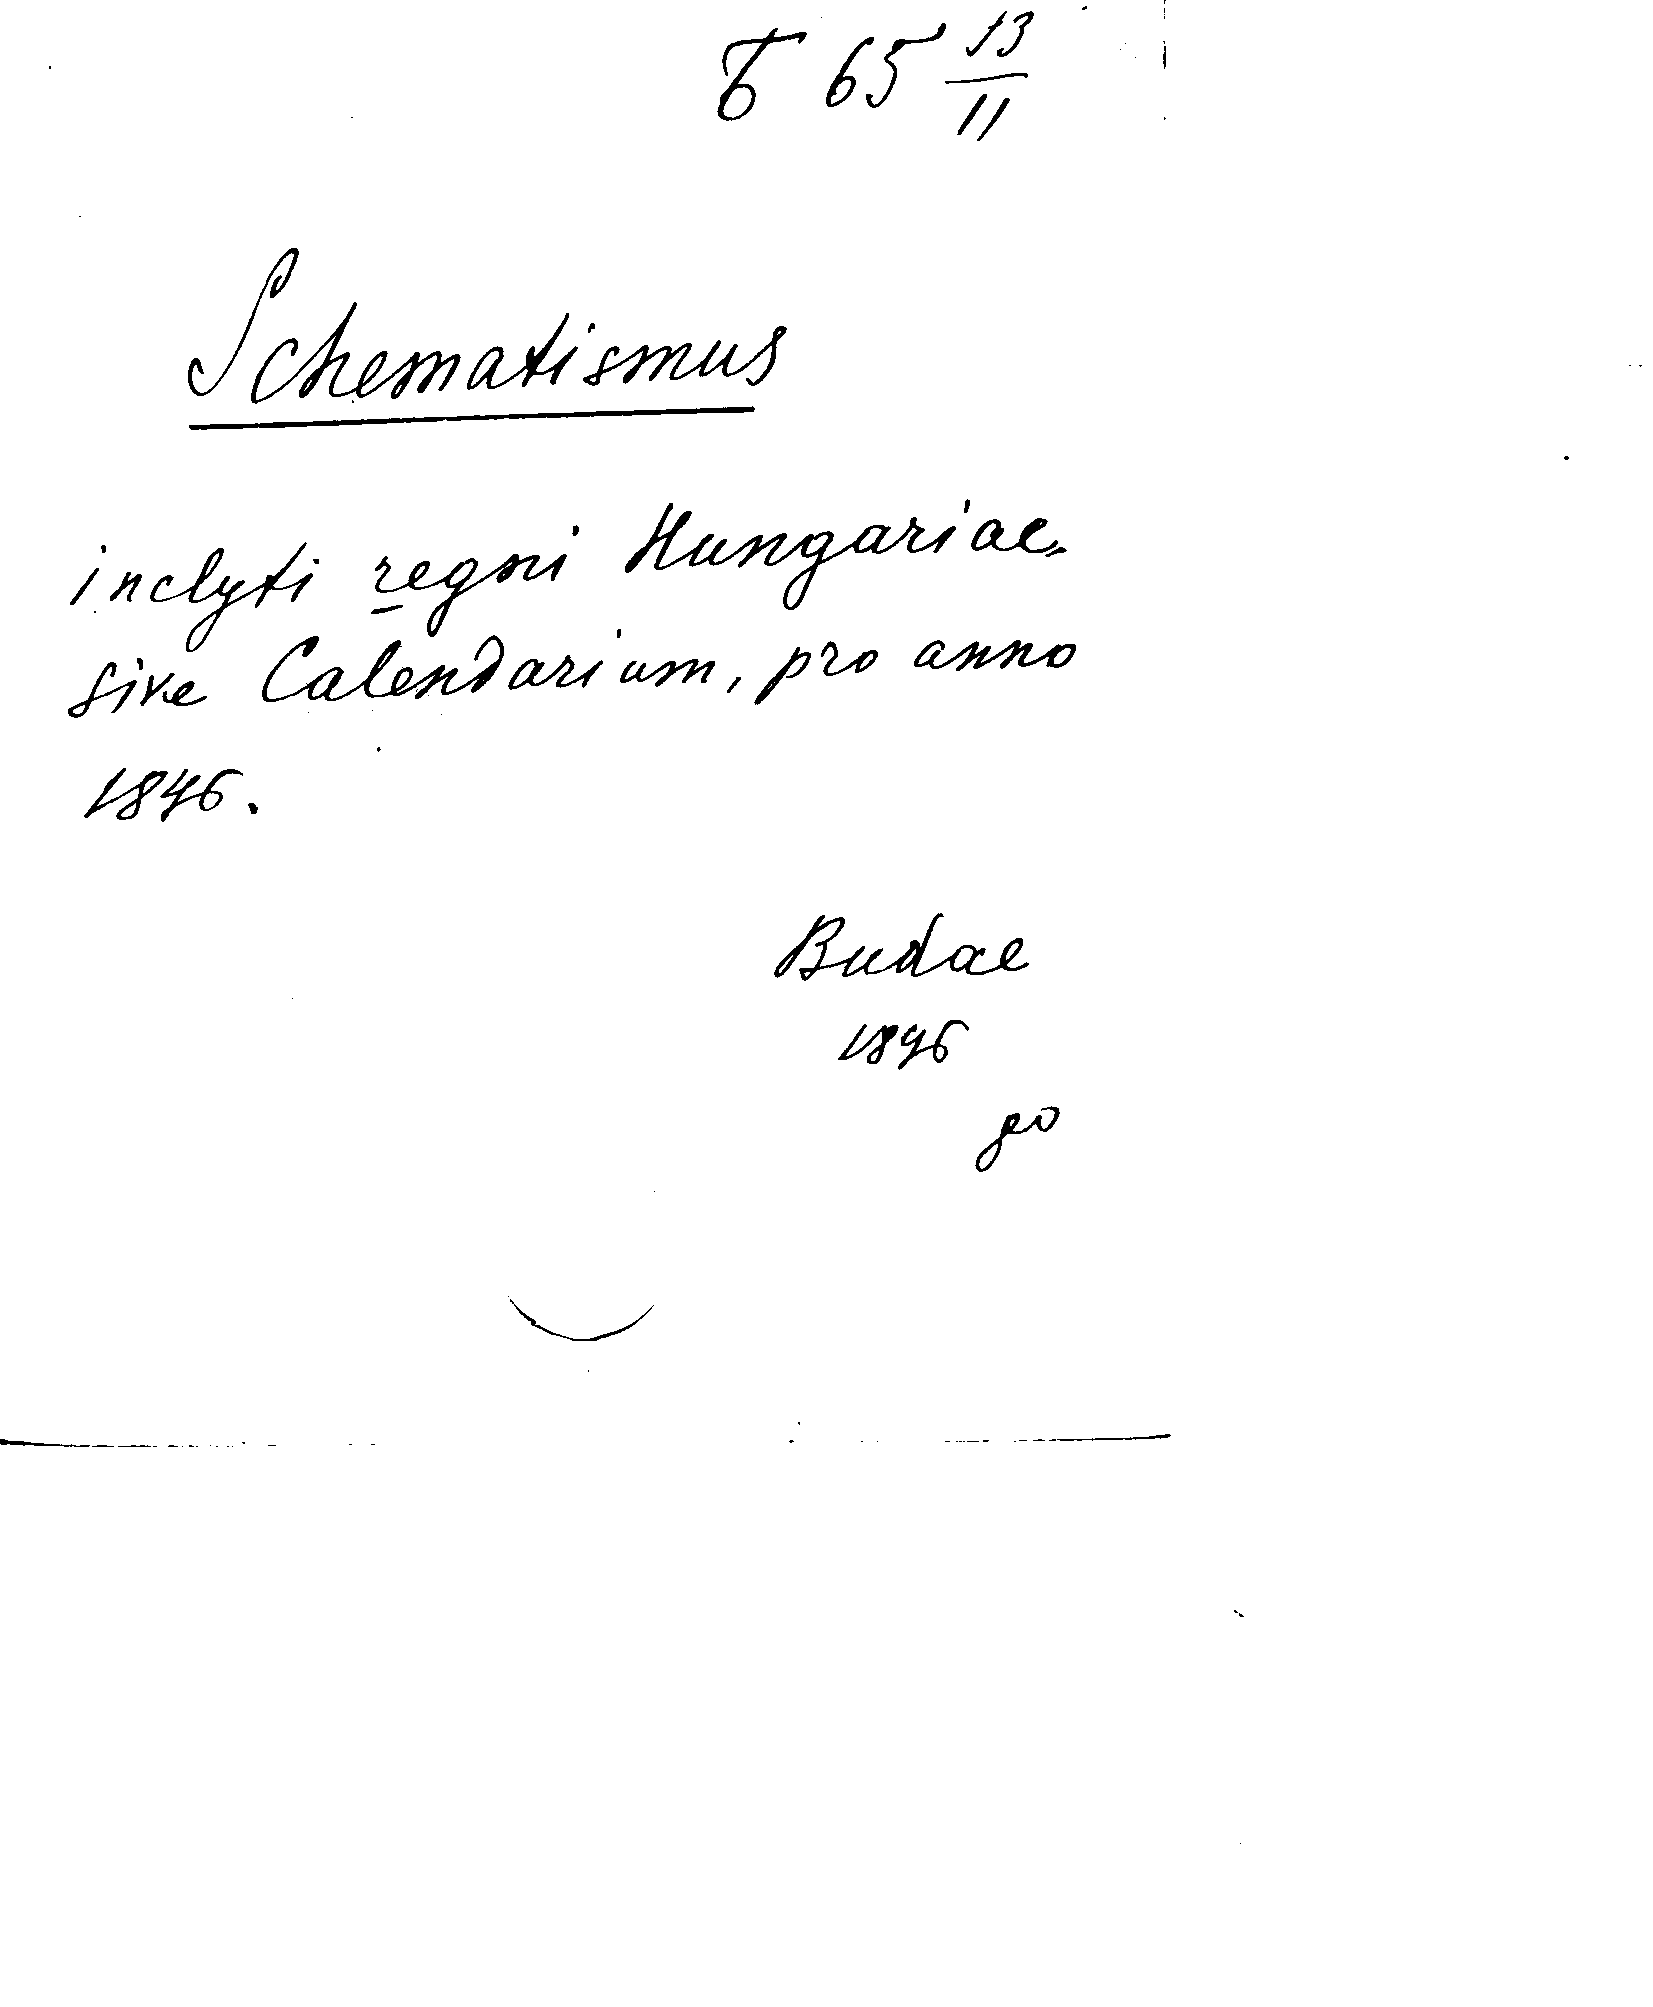 Б 65 13/11
Schematismus
inclyti regni Hungariae,
sive Calendarium, pro anno
1846.
Budae
1846